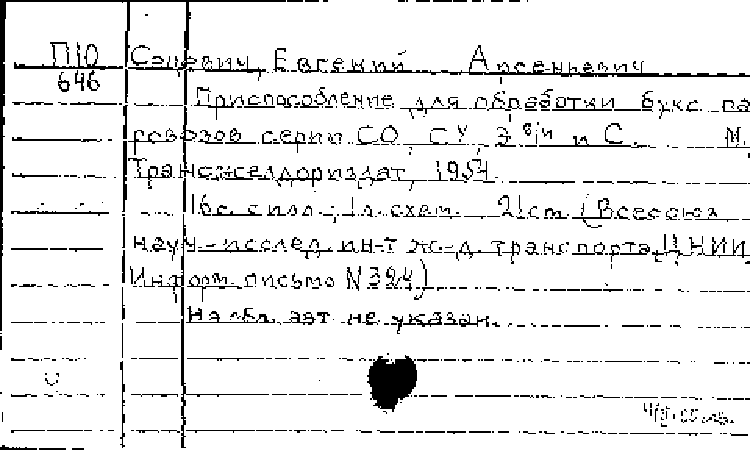 П10
646
Евгений Арсеньевич
Приспособление для обработки букс па
ровозов серии СО, СУ, Э в/и и С. М.,
Трансжелдориздат, 1954
16с. с илл.; 1л. схем. 21см (Всесоюз
науч.-исслед. ин-т ж.-д. транспорта ЦНИИ,
Информ. письмо N 324)
На обл. авт не указан.